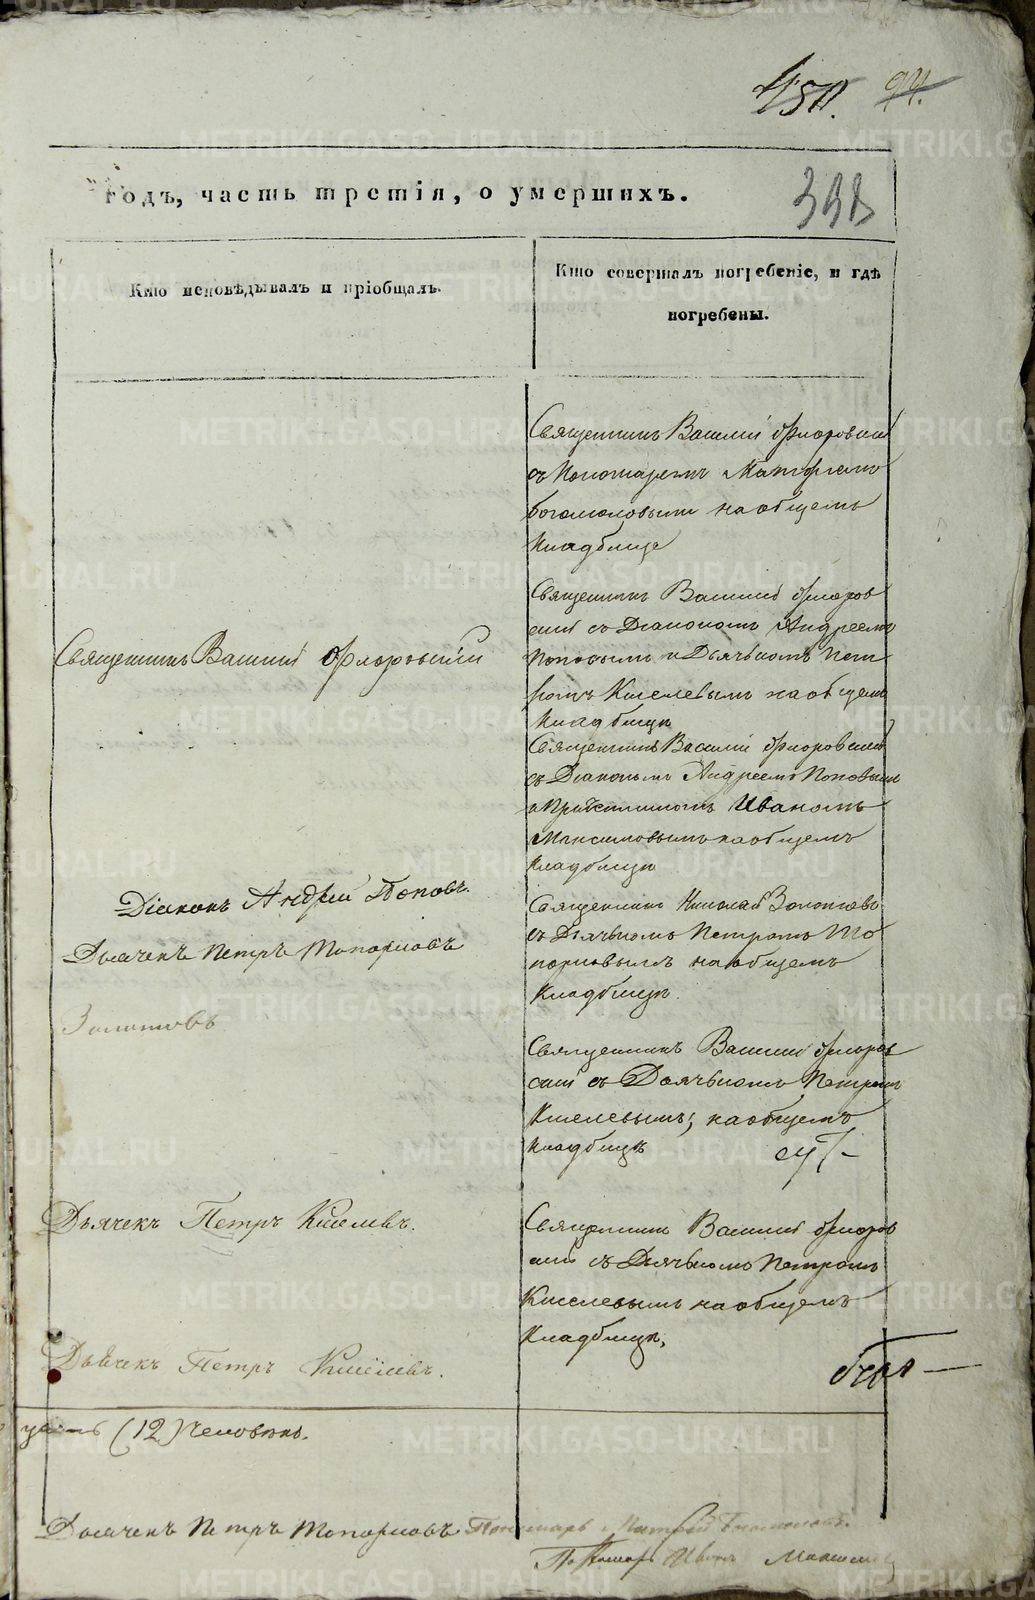 450. 94.
338
годъ, часть третія, о умершихъ.
Кто исповѣдывалъ и пріобщалъ.
Кто совершалъ погребеніе, и гдѣ
погребены.
Священникъ Василій Флоровскій
съ Пономаремъ
Богомоловымъ на общемъ
Кладбище
Священникъ Василій Флоров
скій съ Діакономъ Андреемъ
Поповымъ и Дьячкомъ Пет
ромъ Киселевымъ на общемъ
Кладбищѣ
Священникъ Василій Флоровскій
Священникъ Василій Флоровскій
съ Діакономъ Андреемъ Поповымъ
и Причетникомъ Иваномъ
Максимовымъ на общемъ
Кладбищѣ
Діаконъ Андрей Поповъ.
Дьячекъ Петръ Топорковъ
Золотовъ
Священникъ Николай Золотовъ
съ Дьячкомъ Петромъ То
порковымъ на общемъ
Кладбищѣ.
Священникъ Василій Флоров
скій съ Дьячкомъ Петромъ
Киселевымъ, на общемъ
Кладбищѣ
Дьячекъ Петръ Киселевъ.
Священникъ Василій Флоров
скій съ Дьячкомъ Петромъ
Киселевымъ на общемъ
Кладбищѣ,
Дьячекъ Петръ Киселевъ.
(12) Человѣкъ.
Дьячекъ Петръ Топорковъ Пономарь
Пономарь Иванъ
METRIKI.GASO-URAL.RU